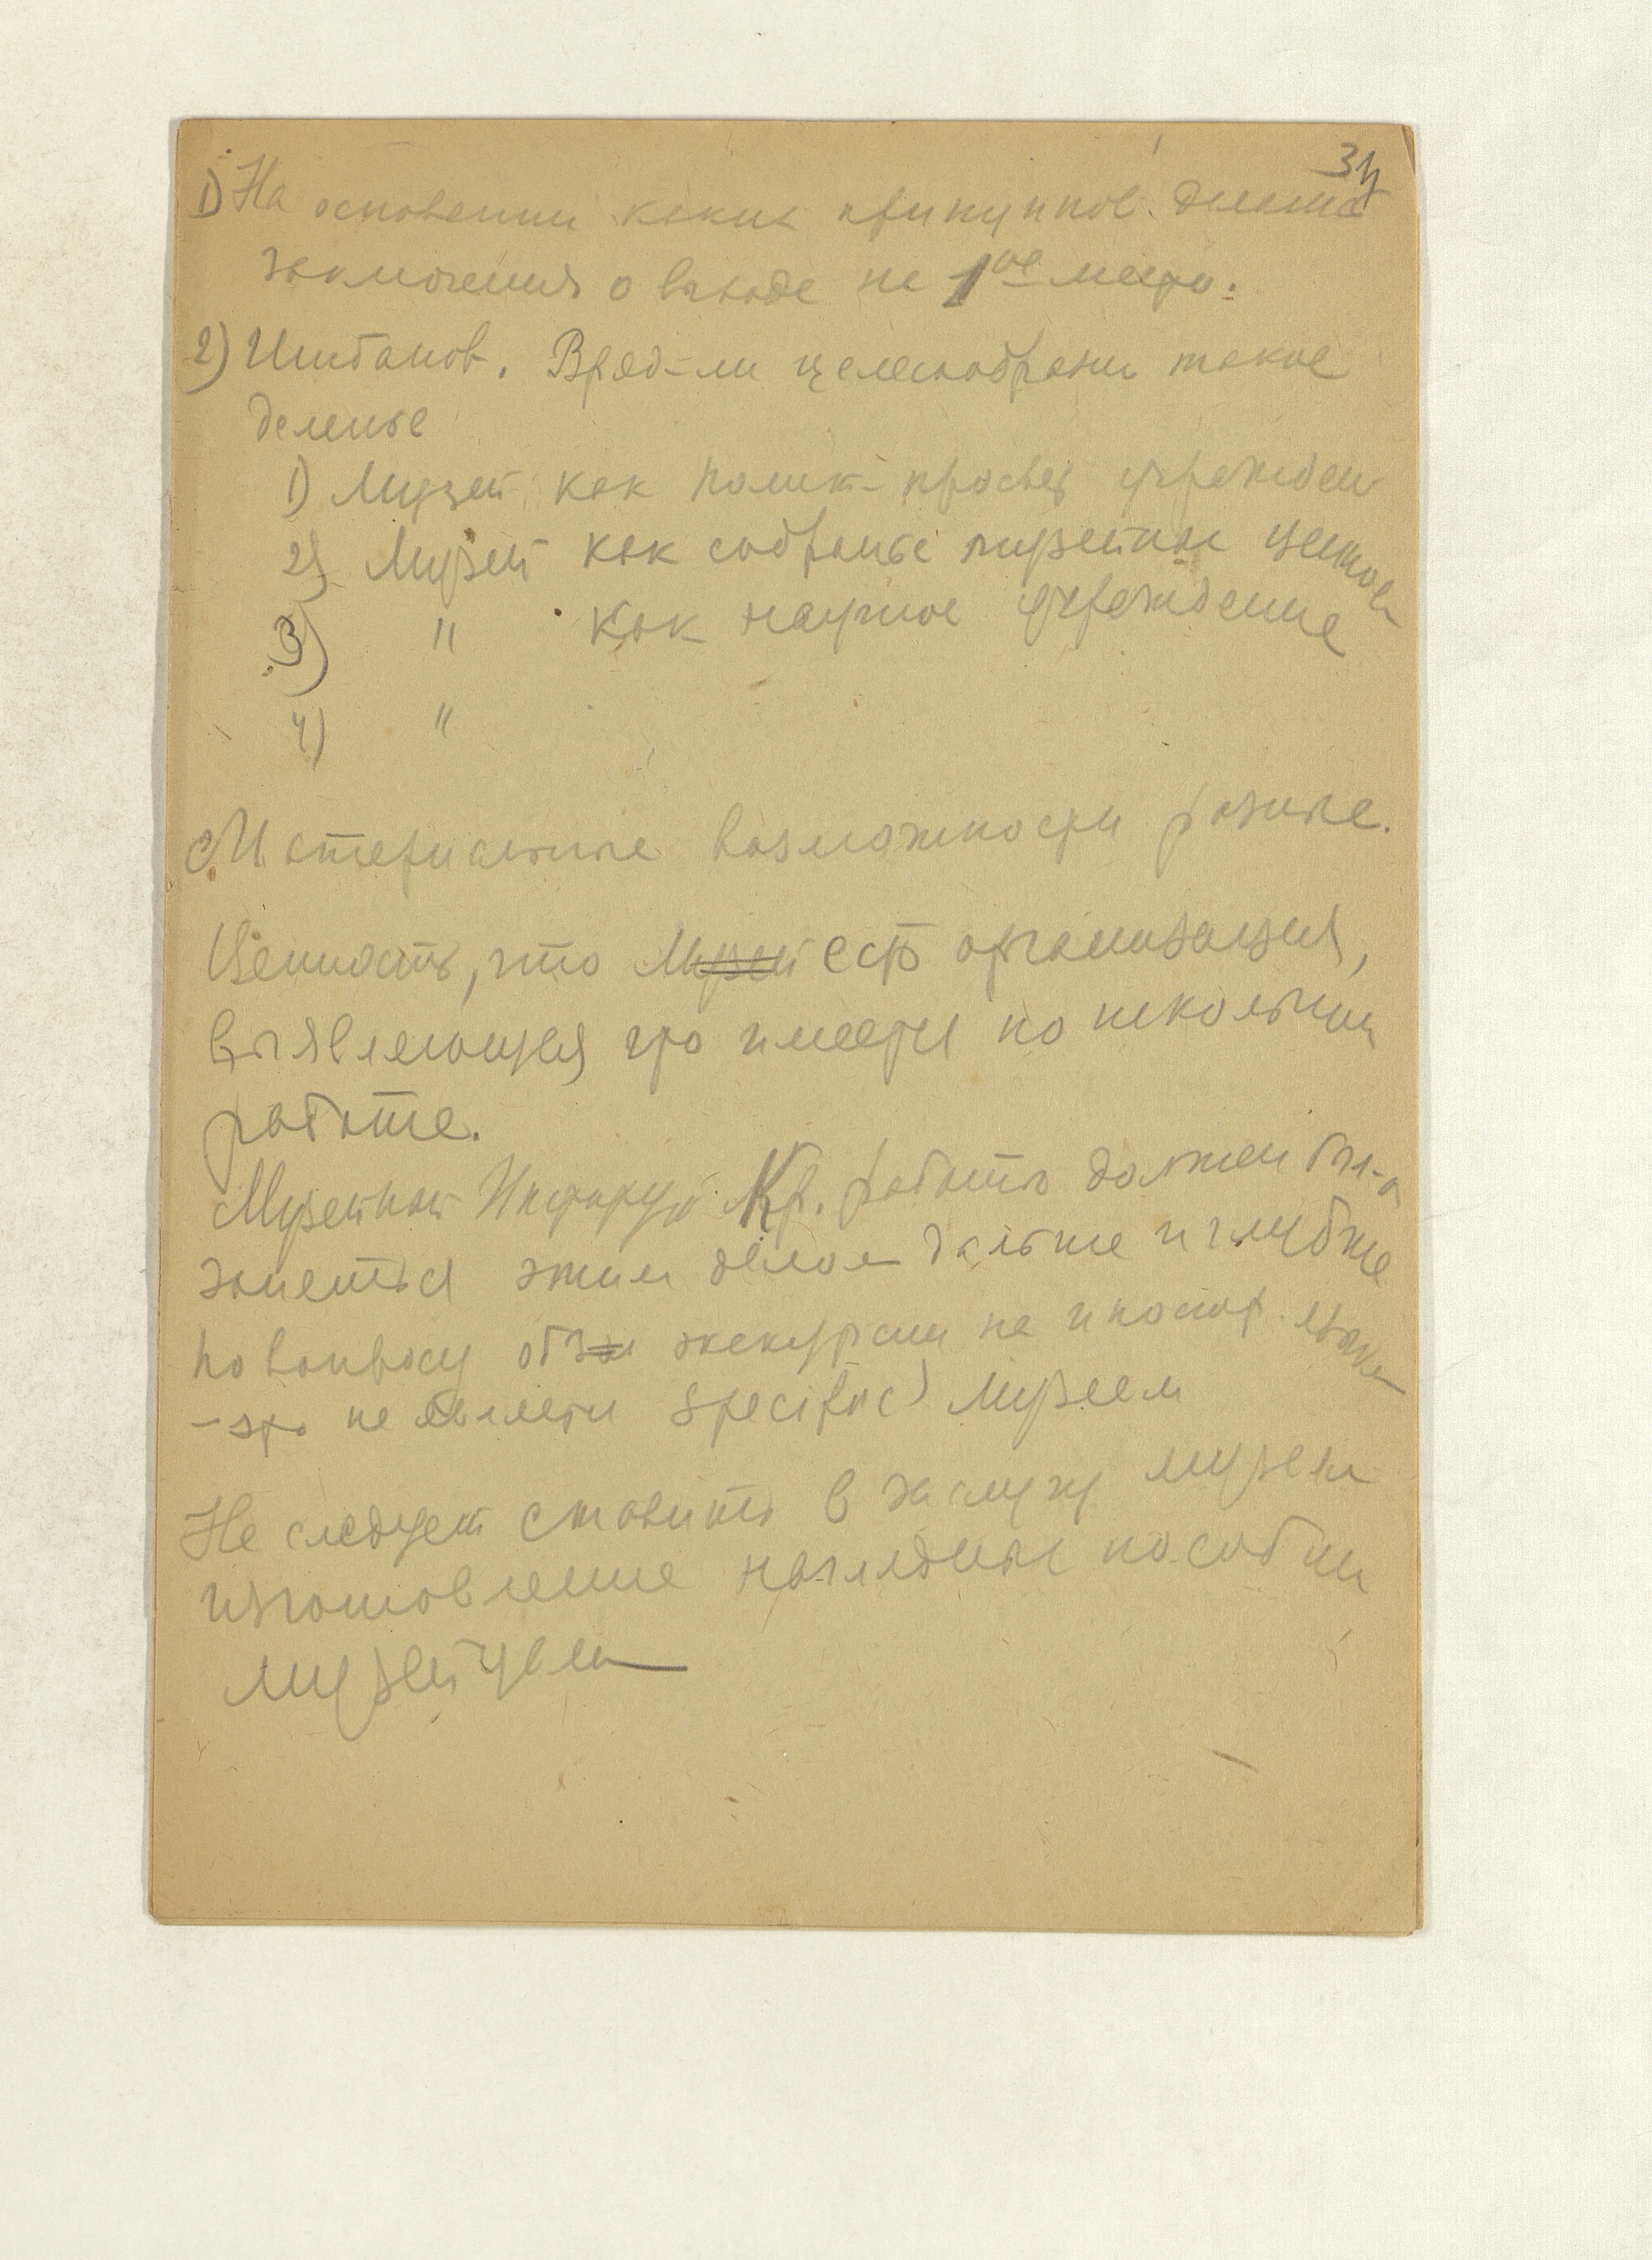 34
1) На основании каких принципов делают
заключения о выходе на 1ое место.
2) Шибанов. Вряд-ли целесообразно такое
деленье
1) Музей как полит-просвет учрежден
2) Музей как собранье музейных ценностей
3) " как научное учреждение
4) "
Материальные возможности разные.
Ценность, что Музей есть организация,
выявляющая что имеется по школьной
работе.
Музейный Кр. работы должен бы-л
заняться этим делом дальше и глубже
по вопросу обзо экскурсии на иностр. языке
- это не является specific) Музеем
Не следует ставить в заслугу музея
изготовление наглядных пособий